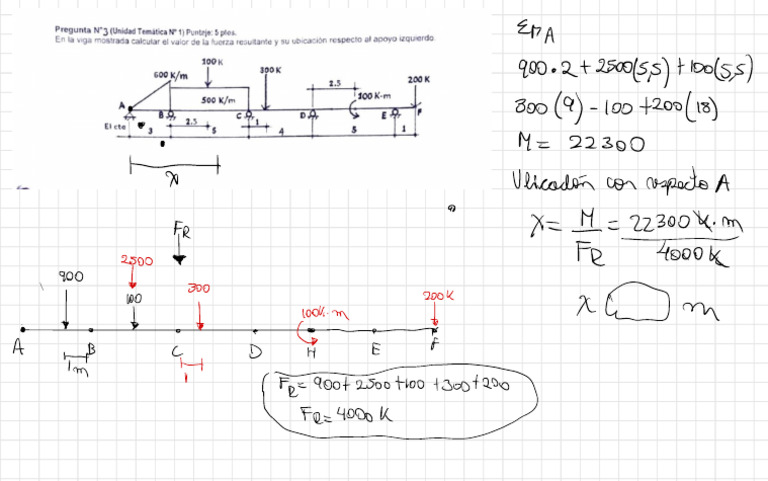 Pregunta N°3 (Unidad Temática N° 1) Puntaje: 5 ptos.
En la viga mostrada calcular el valor de la fuerza resultante y su ubicación respecto al apoyo izquierdo.
600 K/m
100 K
300 K
2.5
200 K
100 K-m
500 K/m
A
B
C
D
E
F
EI cte
3
2.5
5
1
4
5
1
x
ΣMA
900·2 + 2500(5,5) + 100(5,5)
300(9) - 100 + 200(18)
M = 22300
Ubicación con respecto A
x = M / FR = 22300 K·m / 4000 K
x m
FR
900
2500
100
300
100K·m
200K
A
B
C
D
H
E
F
1m
1
FR = 900 + 2500 + 100 + 300 + 200
FR = 4000 K